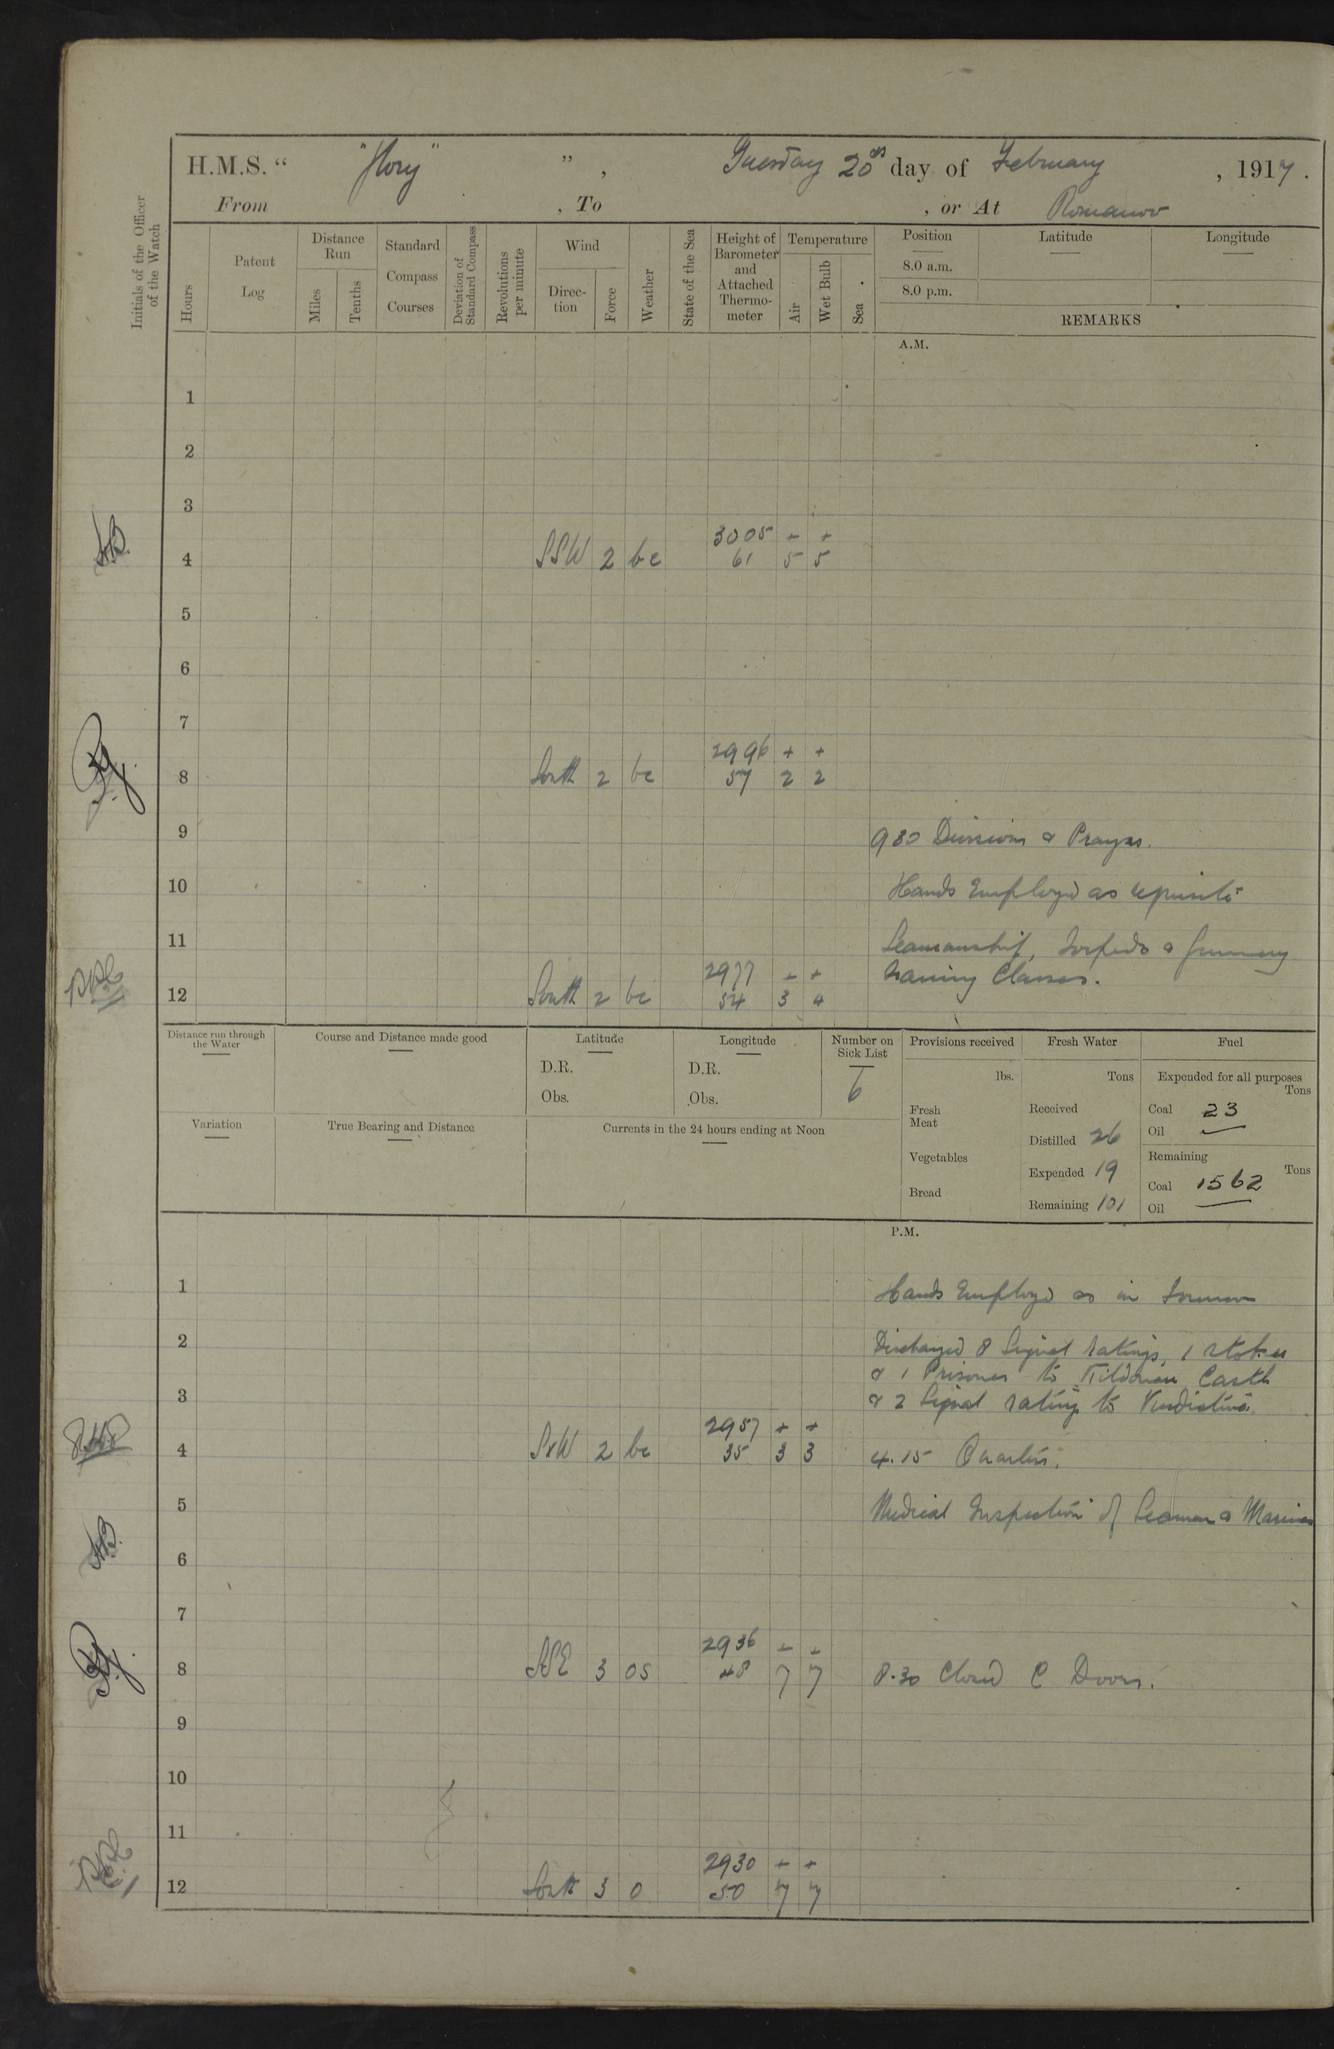 H.M.S. “ "Glory" ” , Tuesday 20th day of February , 1917.
From , To , or At Romanov
Initials of the Officer of the Watch
Hours
Patent Log
Distance Run
Miles
Tenths
Standard Compass Courses
Deviation of Standard Compass
Revolutions per minute
Wind
Direction
Force
Weather
State of the Sea
Height of Barometer and Attached Thermometer
Temperature
Air
Wet Bulb
Sea
Position
Latitude
Longitude
8.0 a.m.
8.0 p.m.
REMARKS
A.M.
1
2
3
3005 + +
4 SSW 2 bc 61 5 5
5
6
7
2996 + +
8 South 2 bc 57 2 2
9 930 Divisions & Prayers.
10 Hands Employed as requisite
11 Seamanship, Torpedo & Gunnery
2977 + + training Classes.
12 South 2 bc 54 3 4
Distance run through the Water
Course and Distance made good
Latitude
D.R.
Obs.
Longitude
D.R.
Obs.
Number on Sick List
6
Provisions received
lbs.
Fresh Meat
Vegetables
Bread
Fresh Water
Tons
Received
Distilled 26
Expended 19
Remaining 101
Fuel
Expended for all purposes
Tons
Coal 23
Oil —
Remaining
Tons
Coal 1562
Oil —
Variation
True Bearing and Distance
Currents in the 24 hours ending at Noon
P.M.
1 Hands Employed as in forenoon
2 Discharged 8 Signal ratings, 1 stoker
& 1 Prisoner to Kildonan Castle
3 & 2 Signal ratings to Vindictive.
2957 + +
4 SxW 2 bc 35 3 3 4.15 Quarters.
5 Medical Inspection of Seamen & Marines
6
7
2936 + +
8 SSE 3 os 48 7 7 8.30 Closed C Doors.
9
10
11
2930 + +
12 South 3 o 50 7 7